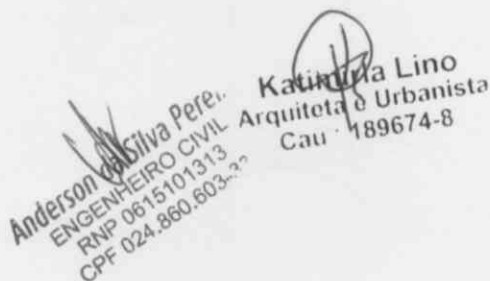 Anderson da Silva
ENGENHEIRO CIVIL
RNP 0615101313
CPF 024.860.603-
Katimiria Lino
Arquiteta e Urbanista
Cau 189674-8